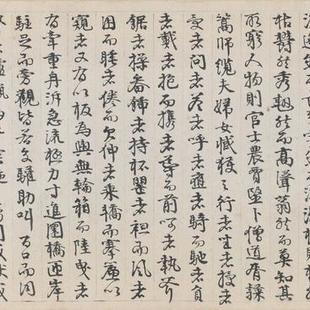 枯欝然秀翹然而高聳蓊然而莫知其
所窮人物則官士農賈醫卜僧道胥隸
篙師纜夫婦女臧獲之行者坐者授者
受者問者答者呼者應者騎而馳者負
者戴者抱而攜者導而前呵者執斧
鋸者操畚鍤者持杯罌者袒而風者
困而睡者倦而欠伸者乘轎而搴簾以
窺者又有以板為輿無輪箱而陸曳者
有牽重舟泝急流極力寸進圜橋匝岸
駐足而旁觀皆若交驩助叫百口而同